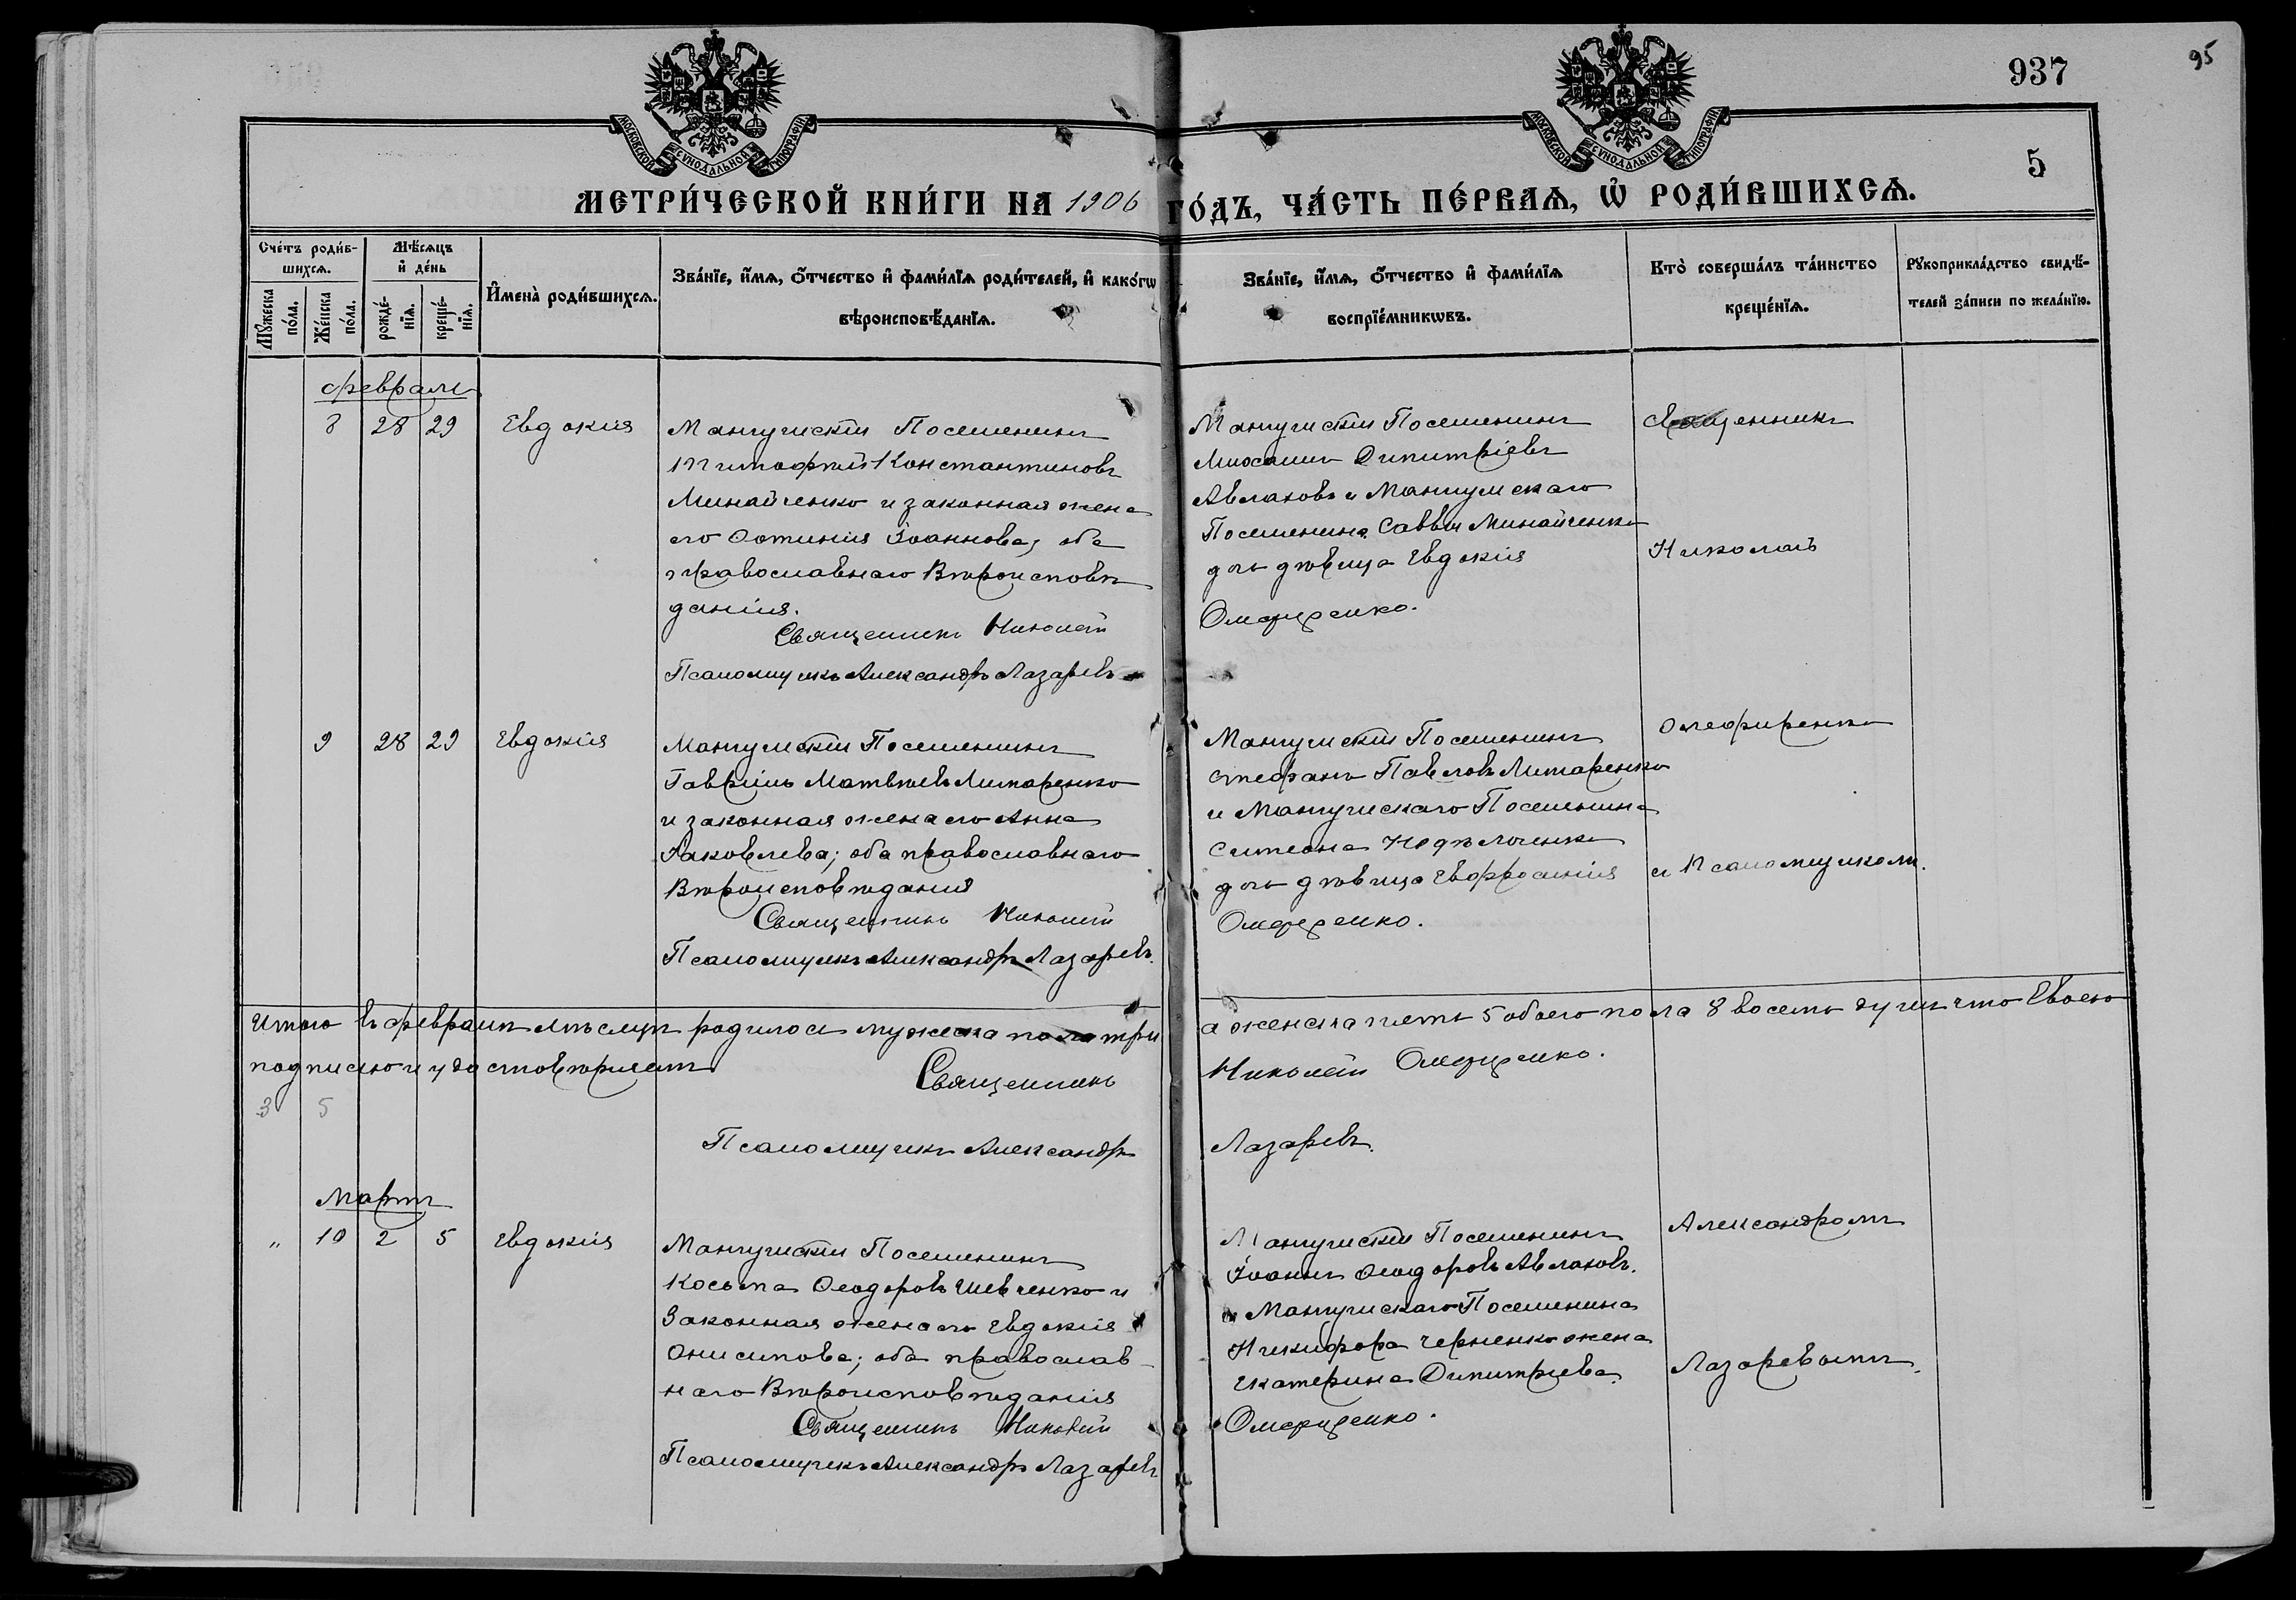 937
95
5
МОСКОВСКОЙ СУНОДАЛЬНОЙ ТИПОГРАФІИ
МОСКОВСКОЙ СУНОДАЛЬНОЙ ТИПОГРАФІИ
МЕТРИ́ЧЕСКОЙ КНИ́ГИ НА 1906 ГО́ДЪ, ЧА́СТЬ ПЕ́РВАѦ, Ѡ҆ РОДИ́ВШИХСѦ.
Сче́тъ роди́в-
шихсѧ.
Мꙋ́жеска по́ла.
Же́нска по́ла.
Мѣ́сѧцъ
и҆ де́нь
рожде́-нїѧ.
креще́-нїѧ.
И҆мена̀ роди́вшихсѧ.
Зва́нїе, и҆́мѧ, ѻ҆́тчество и҆ фами́лїѧ роди́телей, и҆ како́гѡ
вѣроисповѣ́данїѧ.
Зва́нїе, и҆́мѧ, ѻ҆́тчество и҆ фами́лїѧ
воспрїе́мникѡвъ.
Кто̀ соверша́лъ та́инство
креще́нїѧ.
Рꙋкоприкла́дство свидѣ́-
телей за́писи по жела́нїю.
февраль
8 28 29 Евдокія
Мангушскій Поселенинъ
Тимофей Константиновъ
Минайченко и законная жена
его Фотинія Іоаннова, оба
православнаго Вѣроисповѣ
данія.
Священникъ Николай
Псаломщикъ Александръ Лазаревъ
Мангушскій Поселенинъ
Димитріевъ
Авлаховъ и Мангушскаго
Поселенина Саввы Минайченко
дочь дѣвица Евдокія
Олефиренко.
Священникъ
Николай
9 28 29 Евдокія
Мангушскій Поселенинъ
Гавріилъ Матвѣевъ Литаренко
и законная жена его Анна
Яковлева; оба православнаго
Вѣроисповѣданія
Священникъ Николай
Псаломщикъ Александръ Лазаревъ.
Мангушскій Поселенинъ
Стефанъ Павловъ Литаренко
и Мангушскаго Поселенина
Симеона
дочь дѣвица Евфросинія
Олефиренко.
Олефиренко
и Псаломщикомъ
Итого въ февралѣ мѣсяцѣ родилось мужеска пола три а женска пять 5 обоего пола 8 восемь душъ что своею
подписью и удостовѣряемъ
Священникъ Николай Олефиренко.
3 5
Псаломщикъ Александръ Лазаревъ.
Мартъ
" 10 2 5 Евдокія
Мангушскій Поселенинъ
Косьма Феодоровъ Шевченко и
Законная жена его Евдокія
Онисимова; оба православ-
наго Вѣроисповѣданія
Священникъ Николай
Псаломщикъ Александръ Лазаревъ
Мангушскій Поселенинъ
Іоаннъ Феодоровъ Авлаховъ.
и Мангушскаго Поселенина
Никифора Черненко жена
Екатерина Димитріева.
Олефиренко.
Александромъ
Лазаревымъ.